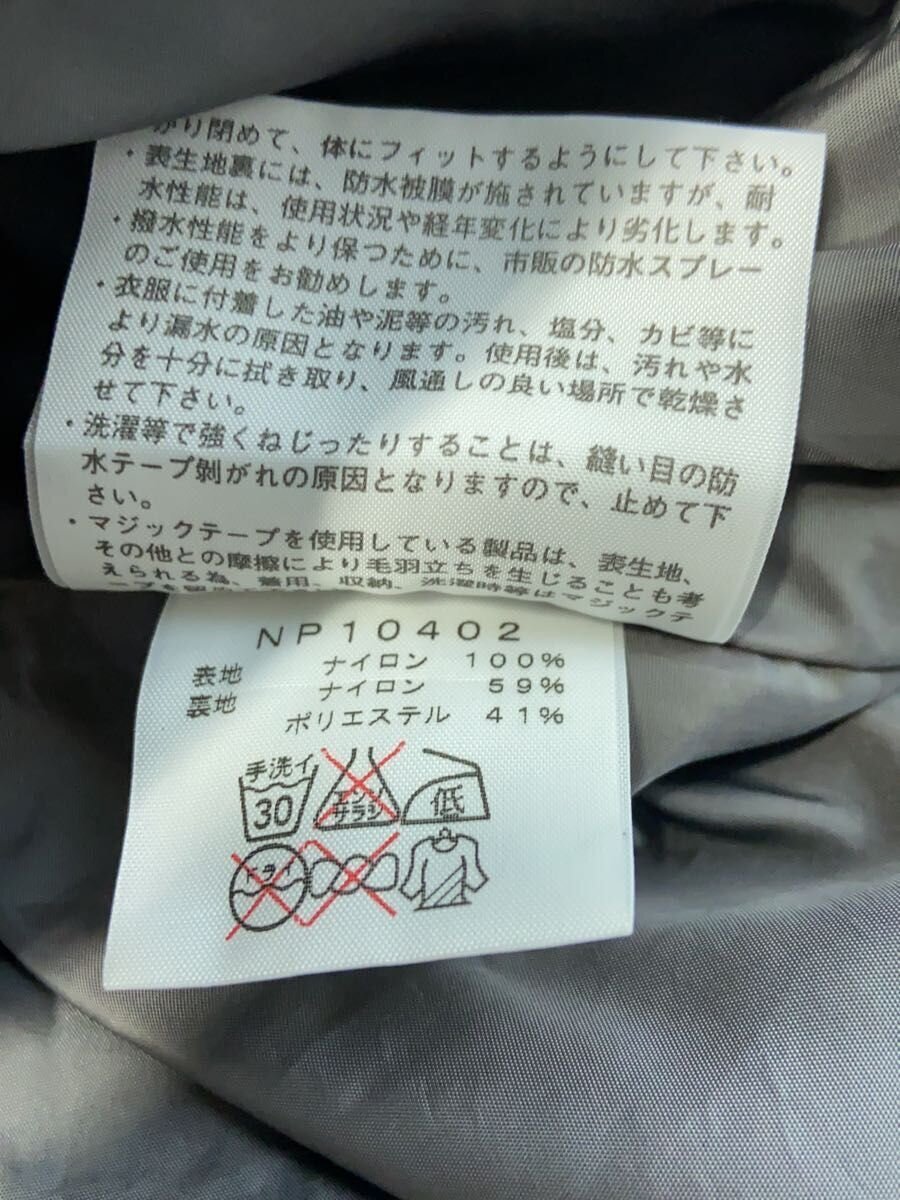 がり閉めて、体にフィットするようにして下さい。
・表生地裏には、防水被膜が施されていますが、耐
水性能は、使用状況や経年変化により劣化します。
・撥水性能をより保つために、市販の防水スプレー
のご使用をお勧めします。
・衣服に付着した油や泥等の汚れ、塩分、カビ等に
より漏水の原因となります。使用後は、汚れや水
分を十分に拭き取り、風通しの良い場所で乾燥さ
せて下さい。
・洗濯等で強くねじったりすることは、縫い目の防
水テープ剝がれの原因となりますので、止めて下
さい。
・マジックテープを使用している製品は、表生地、
その他との摩擦により毛羽立ちを生じることも考
えられる為、着用、収納、洗濯時等はマジックテ
NP10402
表地 ナイロン 100%
裏地 ナイロン 59%
ポリエステル 41%
手洗イ
30
エンソ
サラシ
低
ドライ